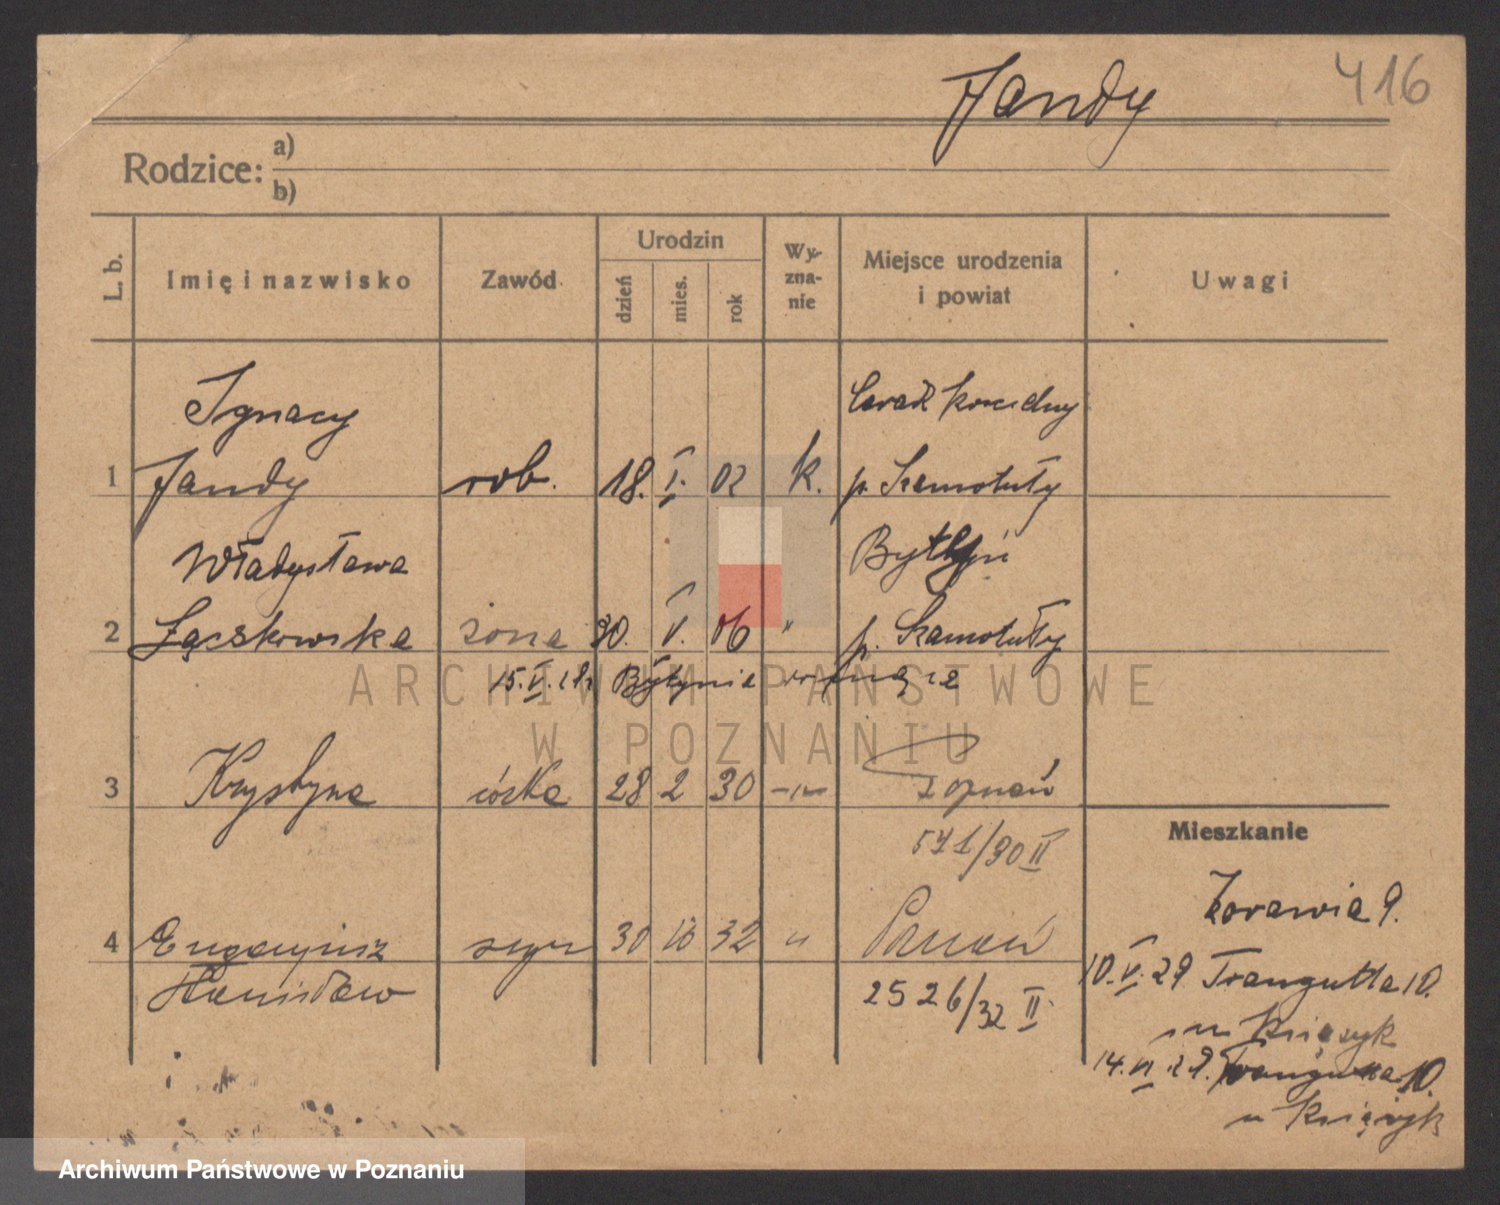 Jandy
416
Rodzice: a)
b)
L. b.
Imię i nazwisko
Zawód
Urodzin
dzień
mies.
rok
Wy-
zna-
nie
Miejsce urodzenia
i powiat
Uwagi
Ignacy
1 Jandy rob. 18. I. 02 k. p. Szamotuły
Władysława Bytyń
2 żona 30. V. 06 " p. Szamotuły
15. V. Bytynie
3 Krystyna córka 28 2 30 -"- Poznań
571/30 II
Mieszkanie
Żórawia 9.
4 Eugenjusz syn 30 10 32 " Poznań
Stanisław
2526/32 II
10. V. 29 Traugutta 10.
Księżyk
14. VI. 29. Traugutta 10.
u Księżyk
ARCHIWUM PAŃSTWOWE
W POZNANIU
Archiwum Państwowe w Poznaniu